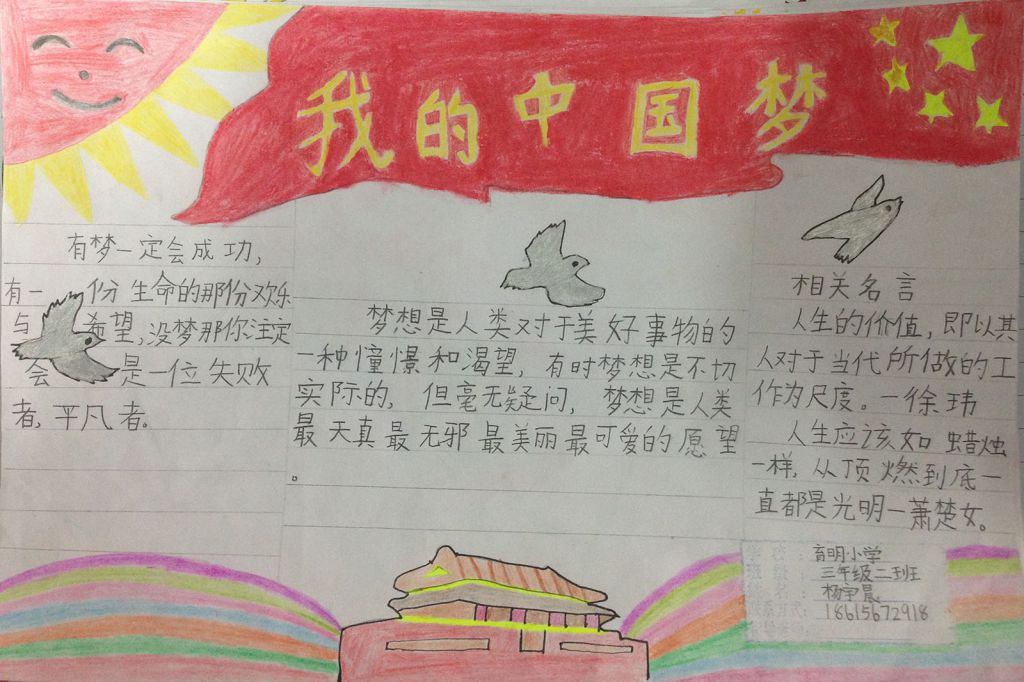 我的中国梦
有梦一定会成功，
有一份生命的那份欢乐
与希望，没梦那你注定
会是一位失败
者，平凡者。
梦想是人类对于美好事物的
一种憧憬和渴望，有时梦想是不切
实际的，但毫无疑问，梦想是人类
最天真最无邪最美丽最可爱的愿望
。
相关名言
人生的价值，即以其
人对于当代所做的工
作为尺度。一徐玮
人生应该如蜡烛
一样，从顶燃到底一
直都是光明一萧楚女。
育明小学
三年级二班
杨宇晨
18615672918